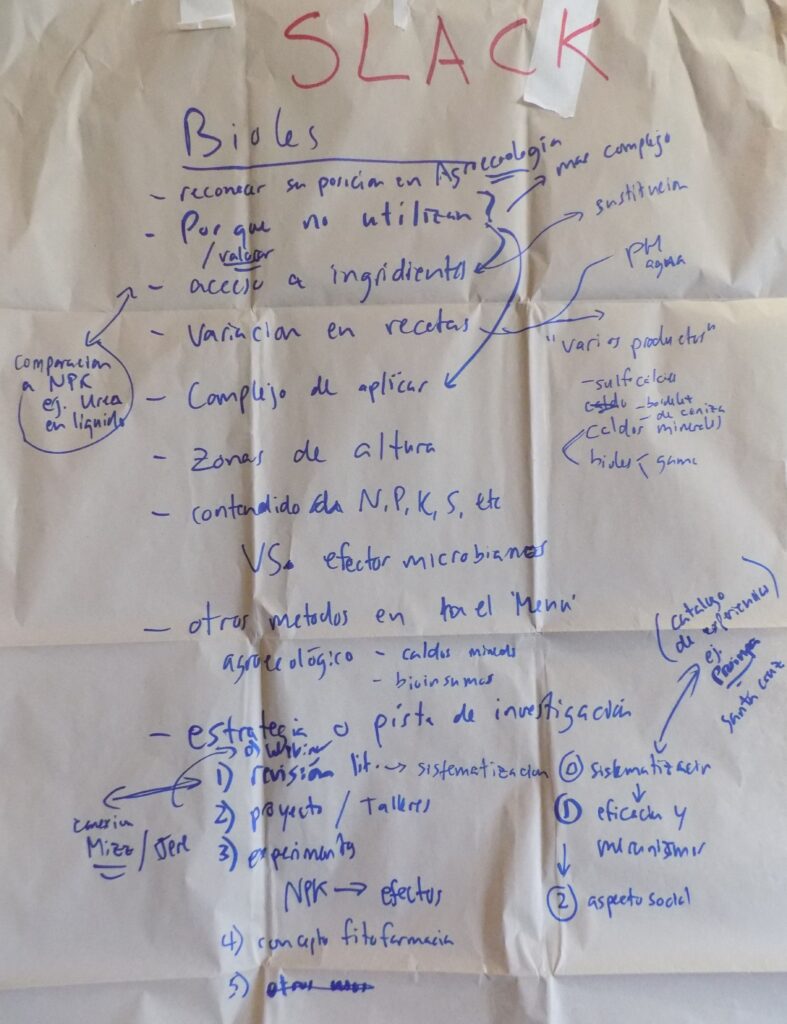 SLACK
Bioles
- reconocer su posicion en Agroecología
- Por que no utilizan?
/ valorar
→ mas complejo
- acceso a ingridientes
→ sustitucion
- Variacion en recetas
PH
agua
"varios productos"
- sulfocalcico
caldos minerales
bioles
comparacion
a NPK
ej. Urea
en liquido
- Complejo de aplicar
- Zonas de altura
- contendido de N, P, K, S, etc
VS. efector microbianos
- otros metodos en el 'Menu'
agroecológico - caldos minerals
- bioinsumos
(catalogo
de experiencias)
ej.
Proinpa
Santa Cruz
- estrategia o pista de investigación
1) revisión lit. → sistematizacion
2) proyecto / Talleres
3) experimentos
NPK → efectos
4) concepto fitofarmacia
5)
conexion
Mizz / Jere
0 sistematizacir
1 eficacia y
2 aspecto social